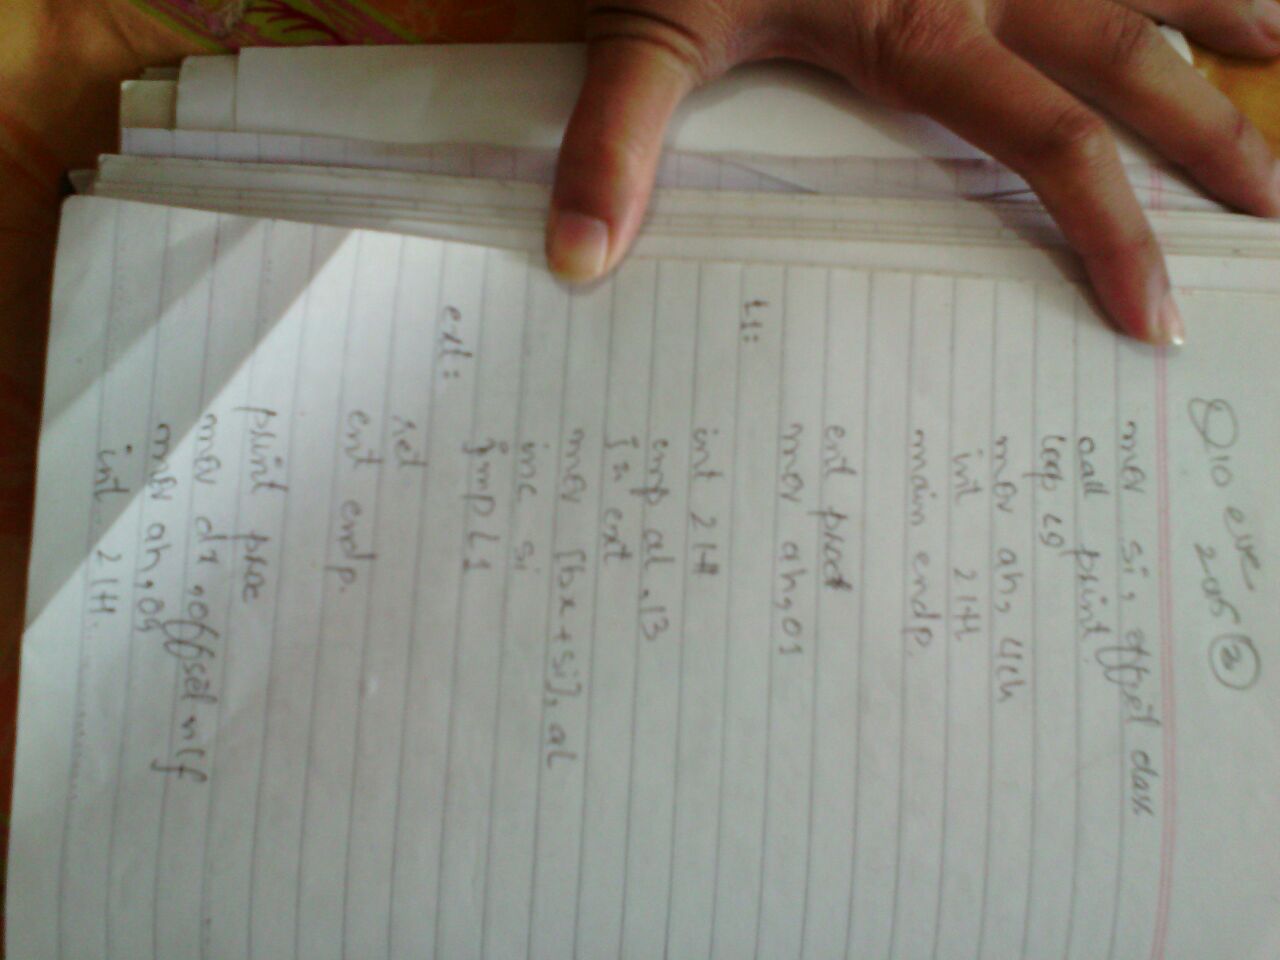 Q10 eve
2015 (2)
mov si, offset class
call print
loop L9
mov ah, 4ch
int 21H
main endp
ent proc
mov ah, 01
L1:
int 21H
cmp al, 13
jz ext
mov [bx+si], al
inc si
jmp L1
ext:
ret
ent endp.
print proc
mov dx, offset nlf
mov ah, 09
int 21H.